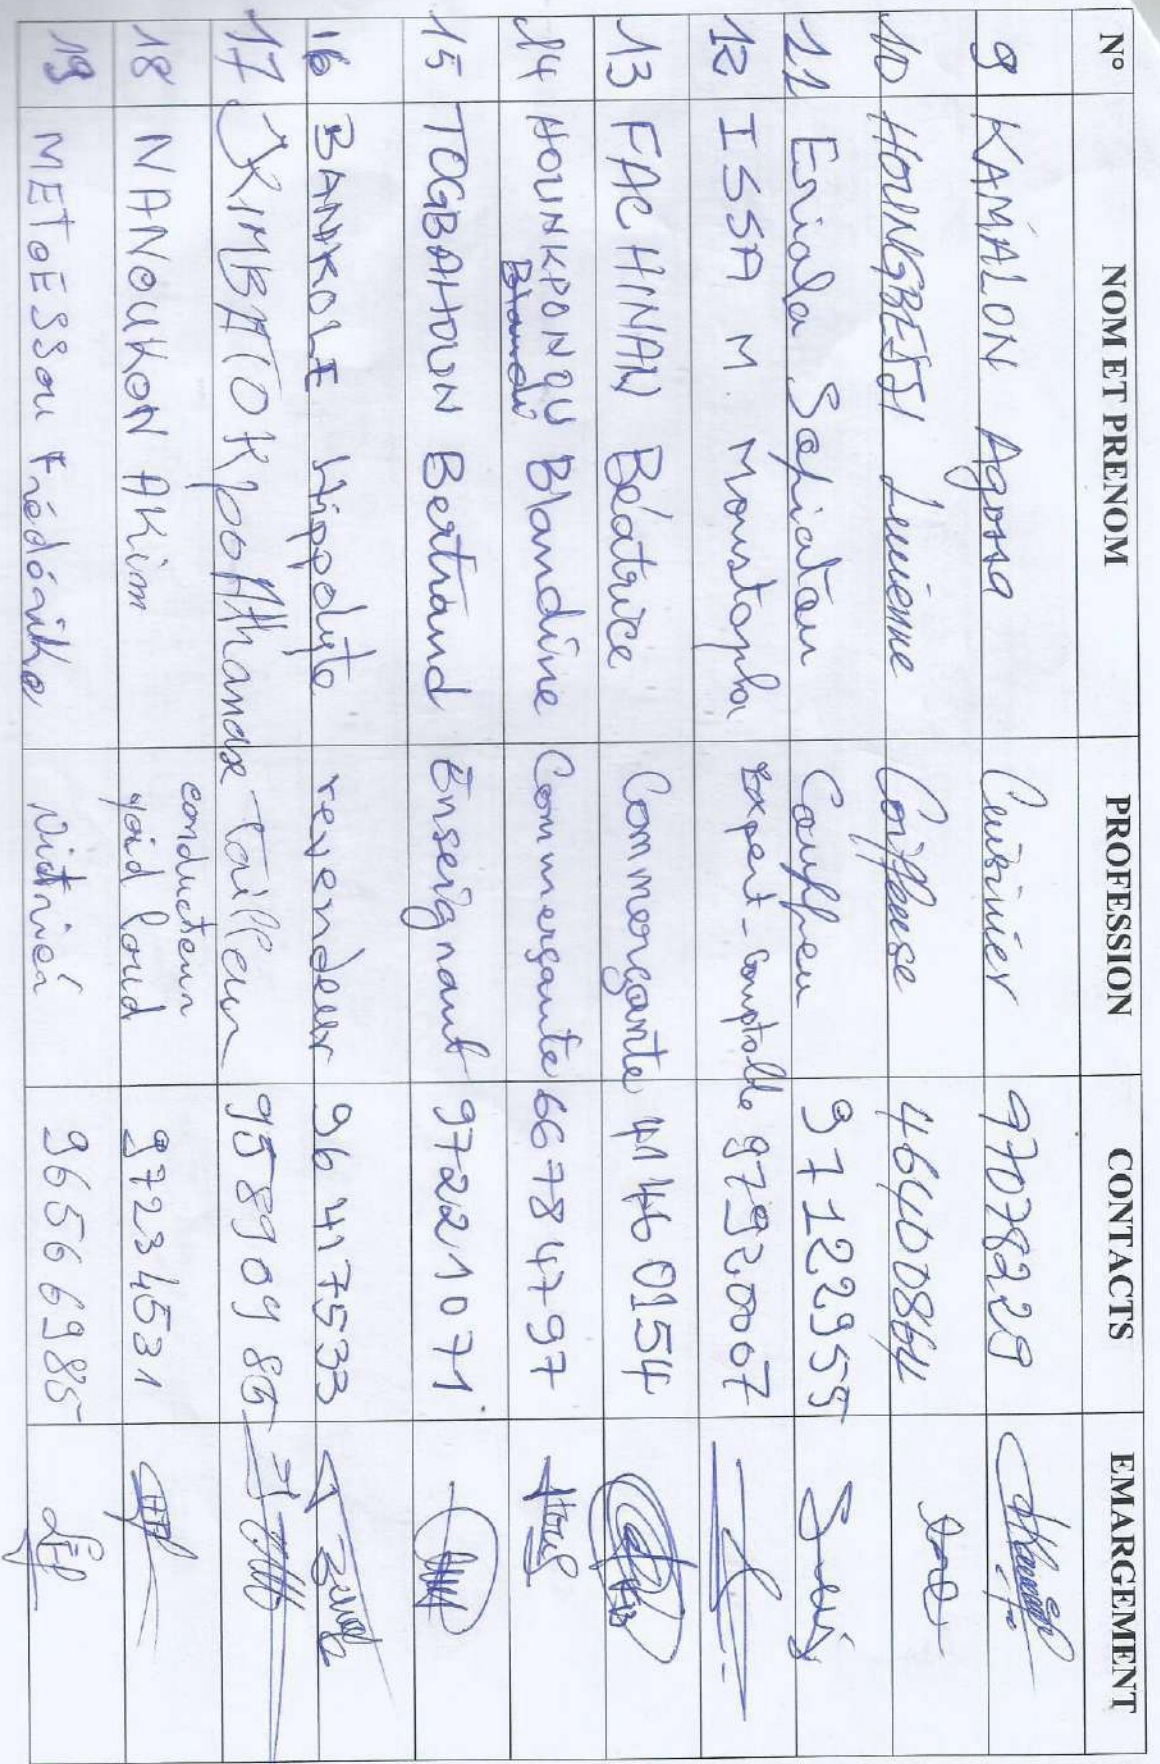 N° NOM ET PRENOM PROFESSION CONTACTS EMARGEMENT
9 KAMALON Agossa Cuisinier 97078229
10 HOUNGBEDJI Lucienne Coiffeuse 46400864
11 Eriola Safiatou Couffeu 97122955
12 ISSA M. Moustapha Expert-Comptable 97920067
13 FACHINAN Béatrice Commerçante 41460154
14 HOUNKPONOU Blandine Commerçante 66784797
15 TOGBAHOUN Bertrand Enseignant 97221071
16 BANKOLE Hippolyte revendeur 96417533
17 KIMBATOKpo Athanase tailleur 95890986
18 NANOUKON AKim conducteur poid lourd 97234531
19 METOESSOU Frédérike Vitrier 96566985